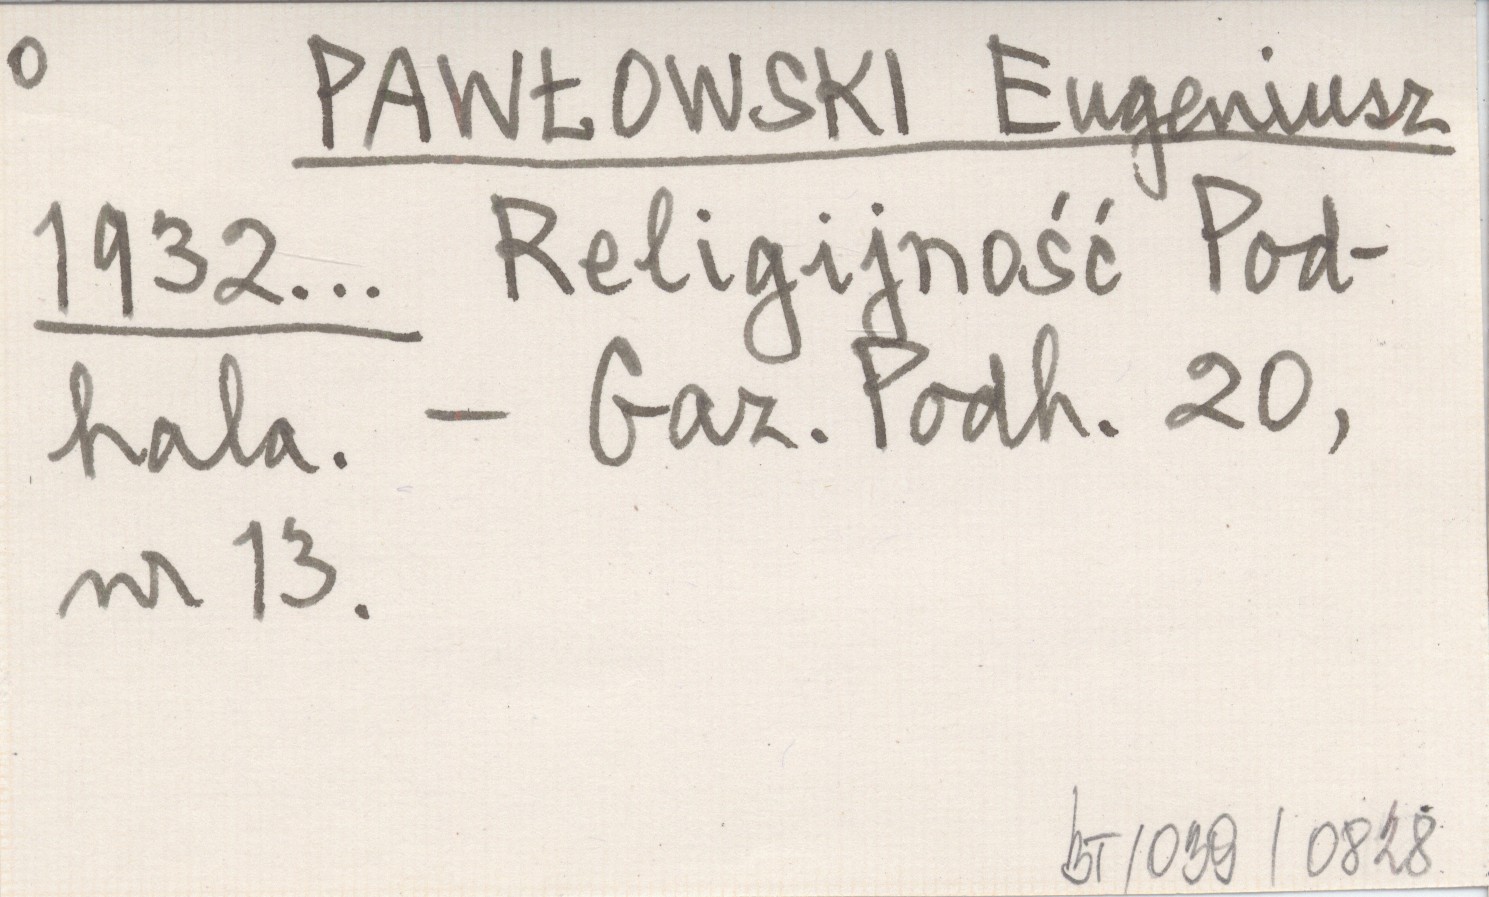 o PAWŁOWSKI Eugeniusz
1932... Religijność Pod-
hala. - Gaz. Podh. 20,
nr 13.
BT/039/0828